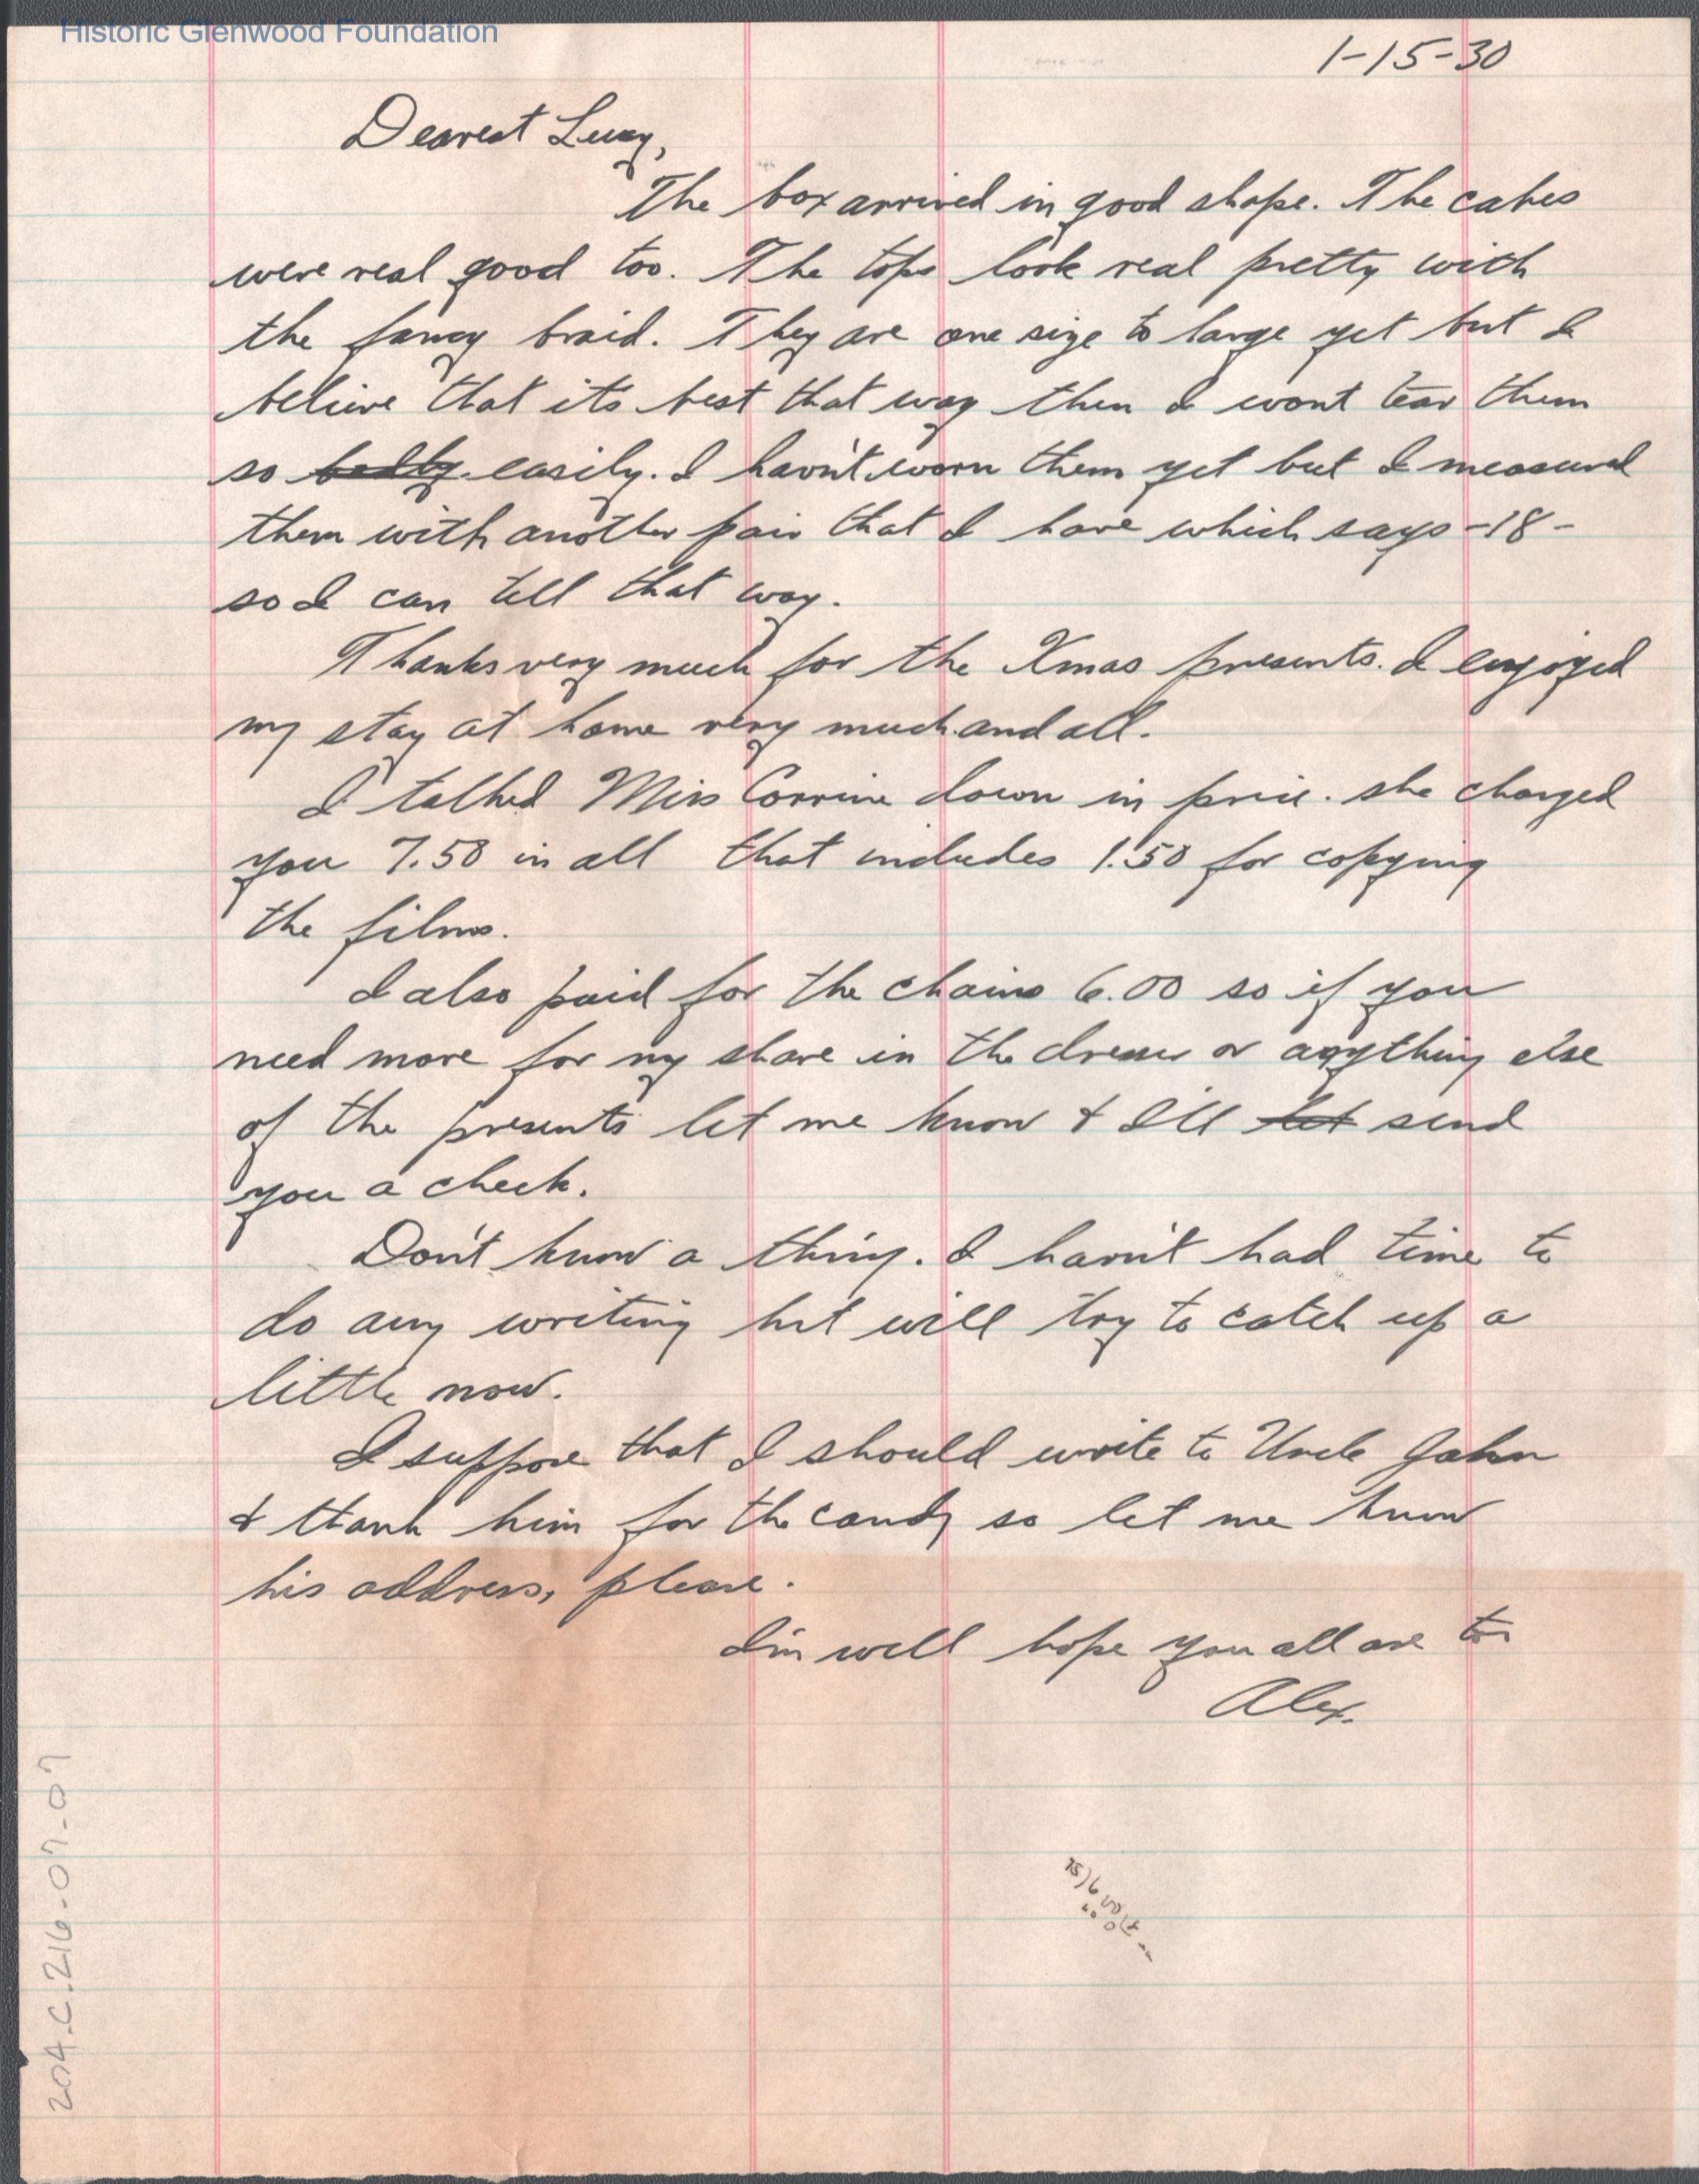 Historic Glenwood Foundation
1-15-30
Dearest Lucy,
The box arrived in good shape. The cakes
were real good too. The tops look real pretty with
the fancy braid. They are one size to large yet but I
believe that its best that way then I wont tear them
so badly easily. I havn't worn them yet but I measured
them with another pair that I have which says -18-
so I can tell that way.
Thanks very much for the Xmas presents. I enjoyed
my stay at home very much and all.
I talked Miss Corrine down in price. she charged
you 7.50 in all that includes 1.50 for copying
the films.
I also paid for the chains 6.00 so if you
need more for my share in the dresser or anything else
of the presents let me know & I'll let send
you a check.
Don't know a thing. I havn't had time to
do any writing but will try to catch up a
little now.
I suppose that I should write to Uncle John
& thank him for the candy so let me know
his address, please.
I'm well hope you all are to
Alex.
204.C.216-07-07